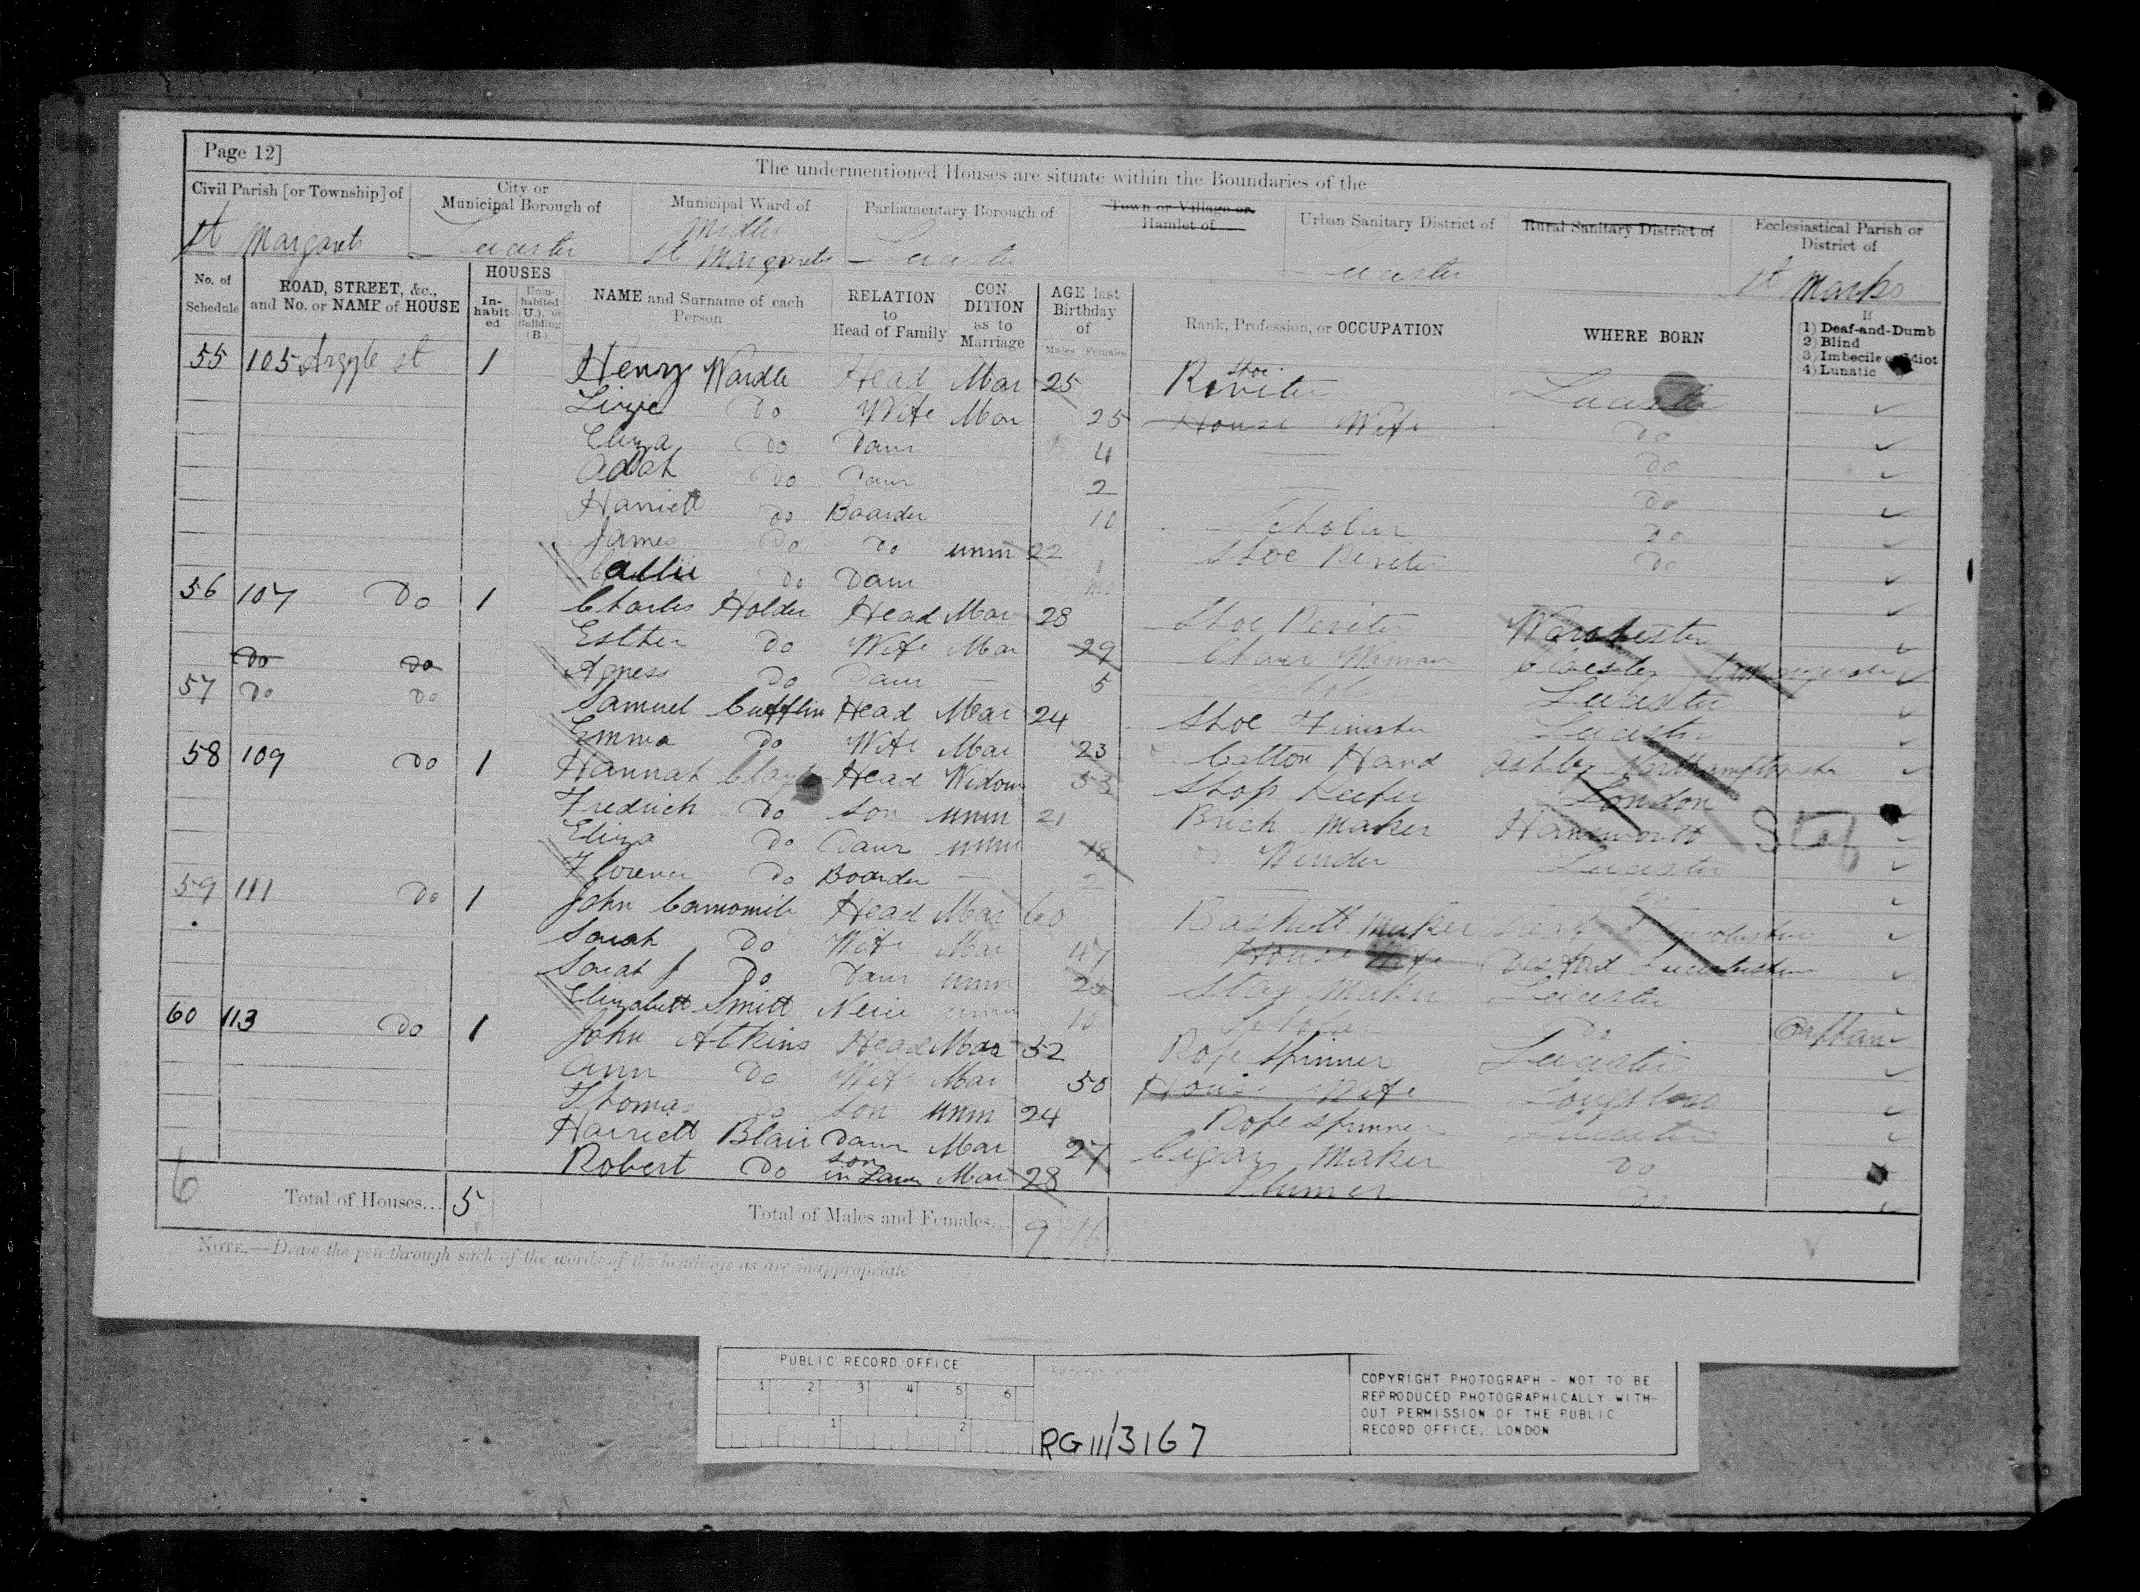 Page 12]
The undermentioned Houses are situate within the Boundaries of the
Civil Parish [or Township] of
City or Municipal Borough of
Municipal Ward of
Parliamentary Borough of
Town or Village or Hamlet of
Urban Sanitary District of
Rural Sanitary District of
Ecclesiastical Parish or District of
St Margarets
Leicester
Middle St Margarets
Leicester
Leicester
St Marks
No. of Schedule
ROAD, STREET, &c., and No. or NAME of HOUSE
HOUSES
In-habit-ed
Unin-habited (U.), or Building (B.)
NAME and Surname of each Person
RELATION to Head of Family
CON-DITION as to Marriage
AGE last Birthday of
Males Females
Rank, Profession, or OCCUPATION
WHERE BORN
If
(1) Deaf-and-Dumb
(2) Blind
(3) Imbecile or Idiot
(4) Lunatic
55 105 Argyle st 1 Henry Wardle Head Mar 25 Shoe Riviter Leicester
Lizzie Do Wife Mar 25 House Wife Do
Eliza Do Daur 4 Do
Adah Do Daur 2 Do
Harriett Do Boarder 10 Scholar Do
James Do Do unm 22 Shoe Reviter Do
Do Daur
56 107 Do 1 Charles Holder Head Mar 28 Shoe Reviter
Esther Do Wife Mar 29 Chair Woman
Do Do
Agness Do Daur 5 Leicester
57 Do Do Samuel Cufflin Head Mar 24 Shoe Finisher Leicester
Emma Do Wife Mar 23 Cotton Hand Ashby Northamptonshr
58 109 Do 1 Hannah Head Widow 53 Shop Keeper London
Fredrick Do Son unm 21 Brick Maker
Eliza Do Daur unm 18 Winder Leicester
Do Boarder 2
59 111 Do 1 John Camomile Head Mar 60 Baskett Maker
Sarah Do Wife Mar 47 House Wife Desford Leicestershire
Sarah J Do Daur unm Stay Maker Leicester
Elizabeth Smith Neice Do Orphan
60 113 Do 1 John Atkins Head Mar 52 Rope Spinner Leicester
Ann Do Wife Mar 50 House Wife
Thomas Do Son unm 24 Rope Spinner Leicester
Harriett Blair Daur Mar 27 Cigar Maker Do
Robert Do Son in Law Mar 28 Plumer Do
6
Total of Houses... 5
Total of Males and Females... 9 16
NOTE.—Draw the pen through such of the words of the headings as are inappropriate
PUBLIC RECORD OFFICE
1 2 3 4 5 6
1 2
RG 11/3167
COPYRIGHT PHOTOGRAPH - NOT TO BE
REPRODUCED PHOTOGRAPHICALLY WITH-
OUT PERMISSION OF THE PUBLIC
RECORD OFFICE, LONDON